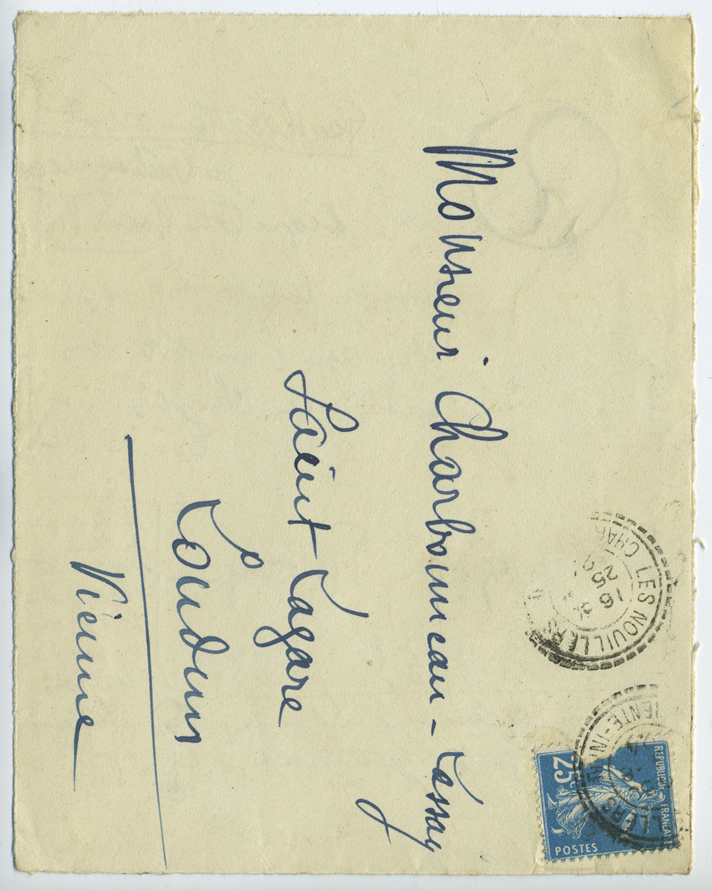 Monsieur Charbonneau-Lassay
Saint Lazare
Loudun
Vienne
LES NOUILLERS
16
25
REPUBLIQUE FRANÇAISE
25
POSTES